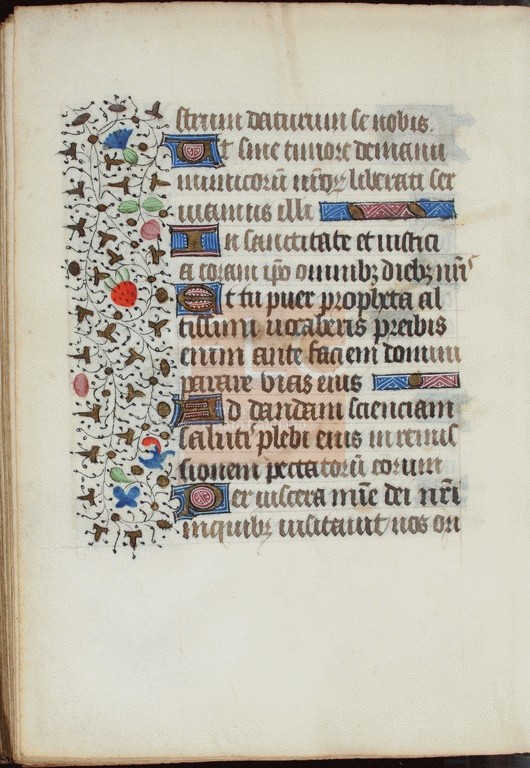 strum daturum se nobis.
Ut sine timore de manu
inimicorū nr̄oꝝ liberati ser
uiamus illi
In sanctitate et iustici
a coram ip̄o omnibꝫ diebꝫ nr̄is
Et tu puer propheta al
tissimi uocaberis preibis
enim ante faciem domini
parare uias eius
Ad dandam scienciam
saluti' plebi eius in remis
sionem peccatorū eorum
Per uiscera mīe dei nr̄i
in quibꝫ uisitauit nos ori